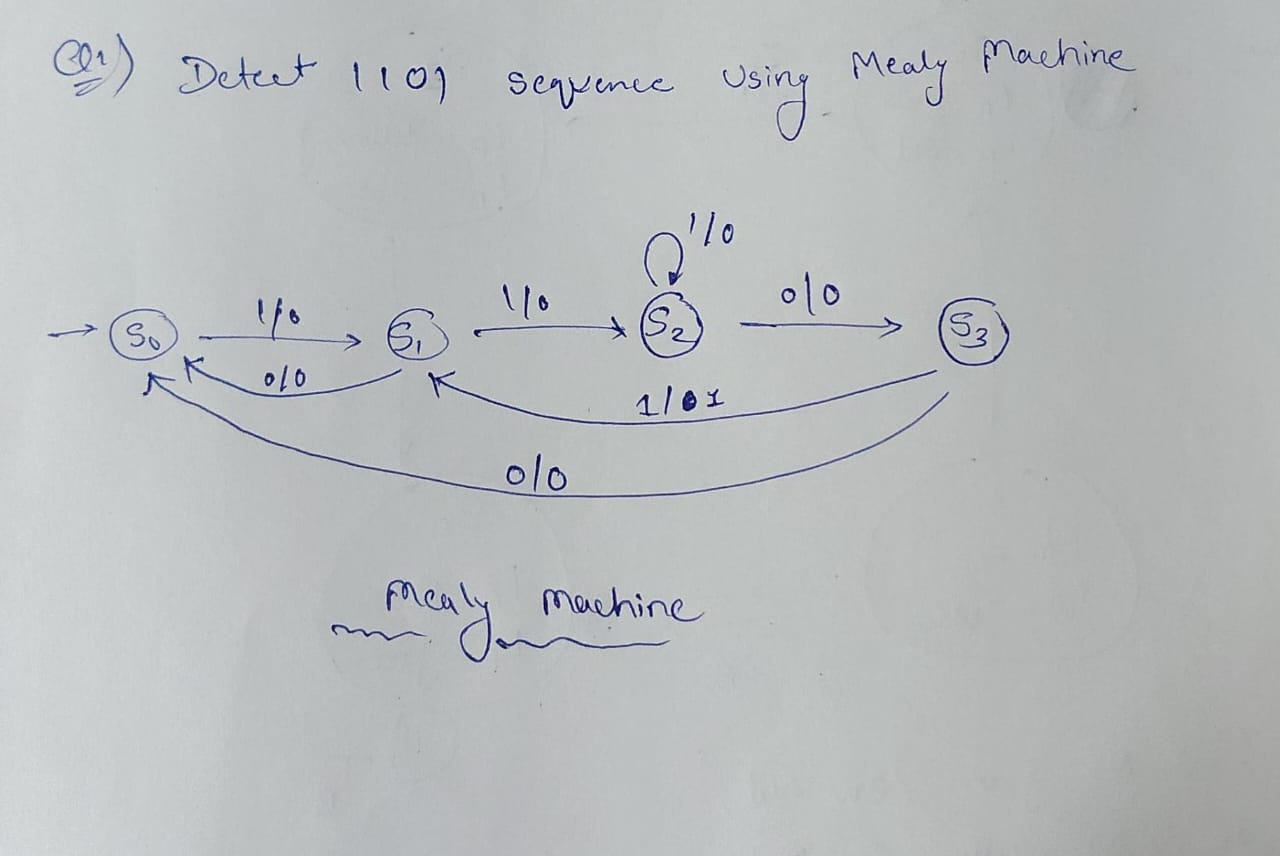 Q1) Detect 1101 sequence Using Mealy Machine
1/0
1/0 1/0 0/0
S0 S1 S2 S3
0/0
1/1
0/0
Mealy Machine